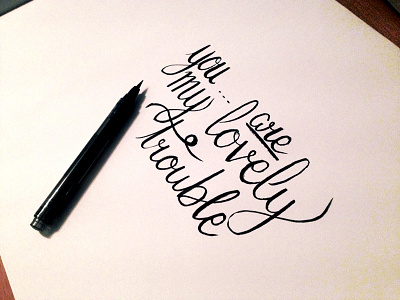 you ... are
my lovely
trouble